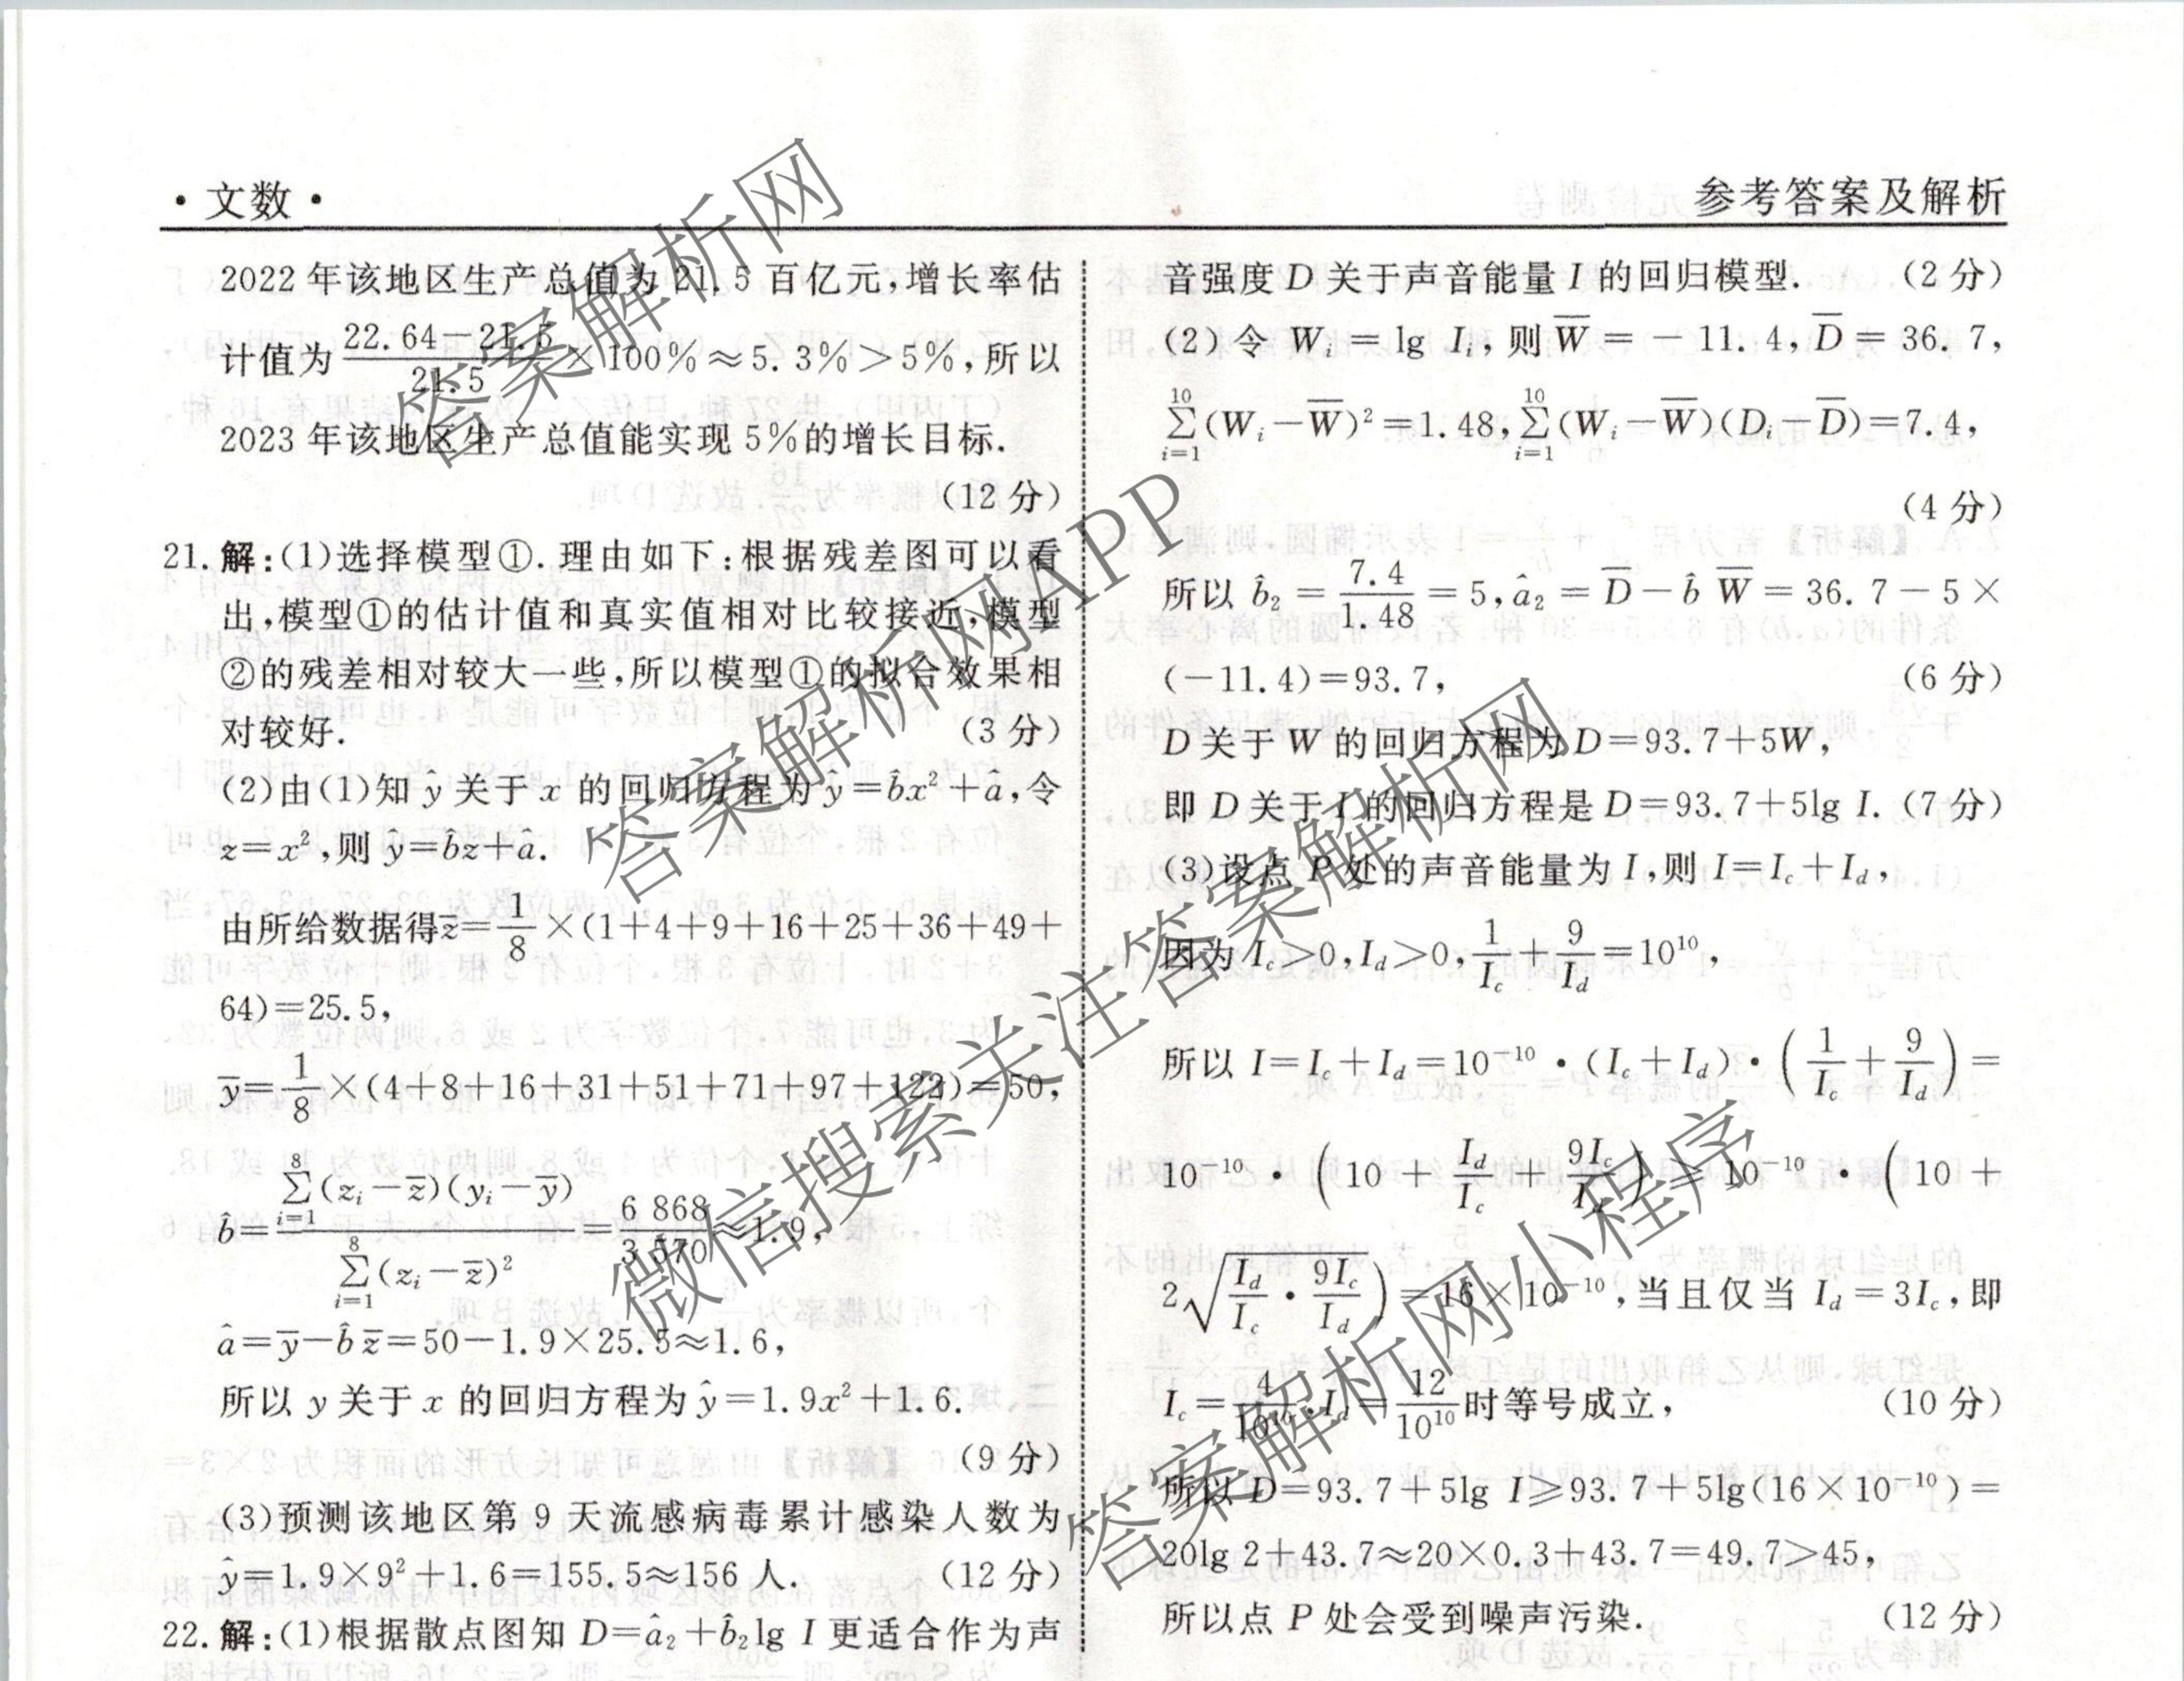 ·文数·
参考答案及解析
2022年该地区生产总值为21.5百亿元,增长率估
计值为\frac{22.64-21.5}{21.5}×100%≈5.3%>5%,所以
2023年该地区生产总值能实现5%的增长目标.
(12分)
21.解:(1)选择模型①.理由如下:根据残差图可以看
出,模型①的估计值和真实值相对比较接近,模型
②的残差相对较大一些,所以模型①的拟合效果相
对较好. (3分)
(2)由(1)知ŷ关于x的回归方程为ŷ=b̂x²+â,令
z=x²,则ŷ=b̂z+â.
由所给数据得z̅=\frac{1}{8}×(1+4+9+16+25+36+49+
64)=25.5,
y̅=\frac{1}{8}×(4+8+16+31+51+71+97+122)=50,
b̂=\frac{\sum_{i=1}^{8}(z_i-z̅)(y_i-y̅)}{\sum_{i=1}^{8}(z_i-z̅)²}=\frac{6 868}{3 570}≈1.9,
â=y̅-b̂z̅=50-1.9×25.5≈1.6,
所以y关于x的回归方程为ŷ=1.9x²+1.6.
(9分)
(3)预测该地区第9天流感病毒累计感染人数为
ŷ=1.9×9²+1.6=155.5≈156人. (12分)
22.解:(1)根据散点图知D=â₂+b̂₂lg I更适合作为声
音强度D关于声音能量I的回归模型. (2分)
(2)令W_i=lg I_i,则W̅=-11.4,D̅=36.7,
\sum_{i=1}^{10}(W_i-W̅)²=1.48,\sum_{i=1}^{10}(W_i-W̅)(D_i-D̅)=7.4,
(4分)
所以b̂₂=\frac{7.4}{1.48}=5,â₂=D̅-b̂W̅=36.7-5×
(-11.4)=93.7, (6分)
D关于W的回归方程为D=93.7+5W,
即D关于I的回归方程是D=93.7+5lg I. (7分)
(3)设点P处的声音能量为I,则I=I_c+I_d,
因为I_c>0,I_d>0,\frac{1}{I_c}+\frac{9}{I_d}=10¹⁰,
所以I=I_c+I_d=10⁻¹⁰·(I_c+I_d)·(\frac{1}{I_c}+\frac{9}{I_d})=
10⁻¹⁰·(10+\frac{I_d}{I_c}+\frac{9I_c}{I_d})≥10⁻¹⁰·(10+
2\sqrt{\frac{I_d}{I_c}·\frac{9I_c}{I_d}})=16×10⁻¹⁰,当且仅当I_d=3I_c,即
I_c=\frac{4}{10¹⁰},I_d=\frac{12}{10¹⁰}时等号成立, (10分)
所以D=93.7+5lg I≥93.7+5lg(16×10⁻¹⁰)=
20lg 2+43.7≈20×0.3+43.7=49.7>45,
所以点P处会受到噪声污染. (12分)
答案解析网
答案解析网APP
微信搜索关注答案解析网
答案解析网小程序